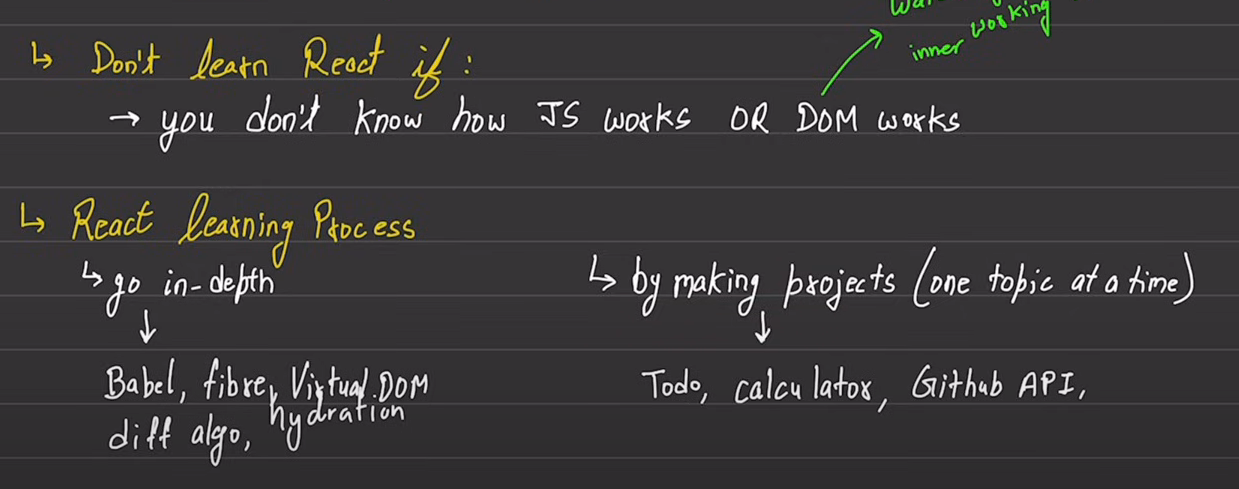 inner working
↳ Don't learn React if :
→ you don't know how JS works OR DOM works
↳ React learning Process
↳ go in-depth
↓
Babel, fibre, Virtual DOM
diff algo, hydration
↳ by making projects (one topic at a time)
↓
Todo, calculator, Github API,